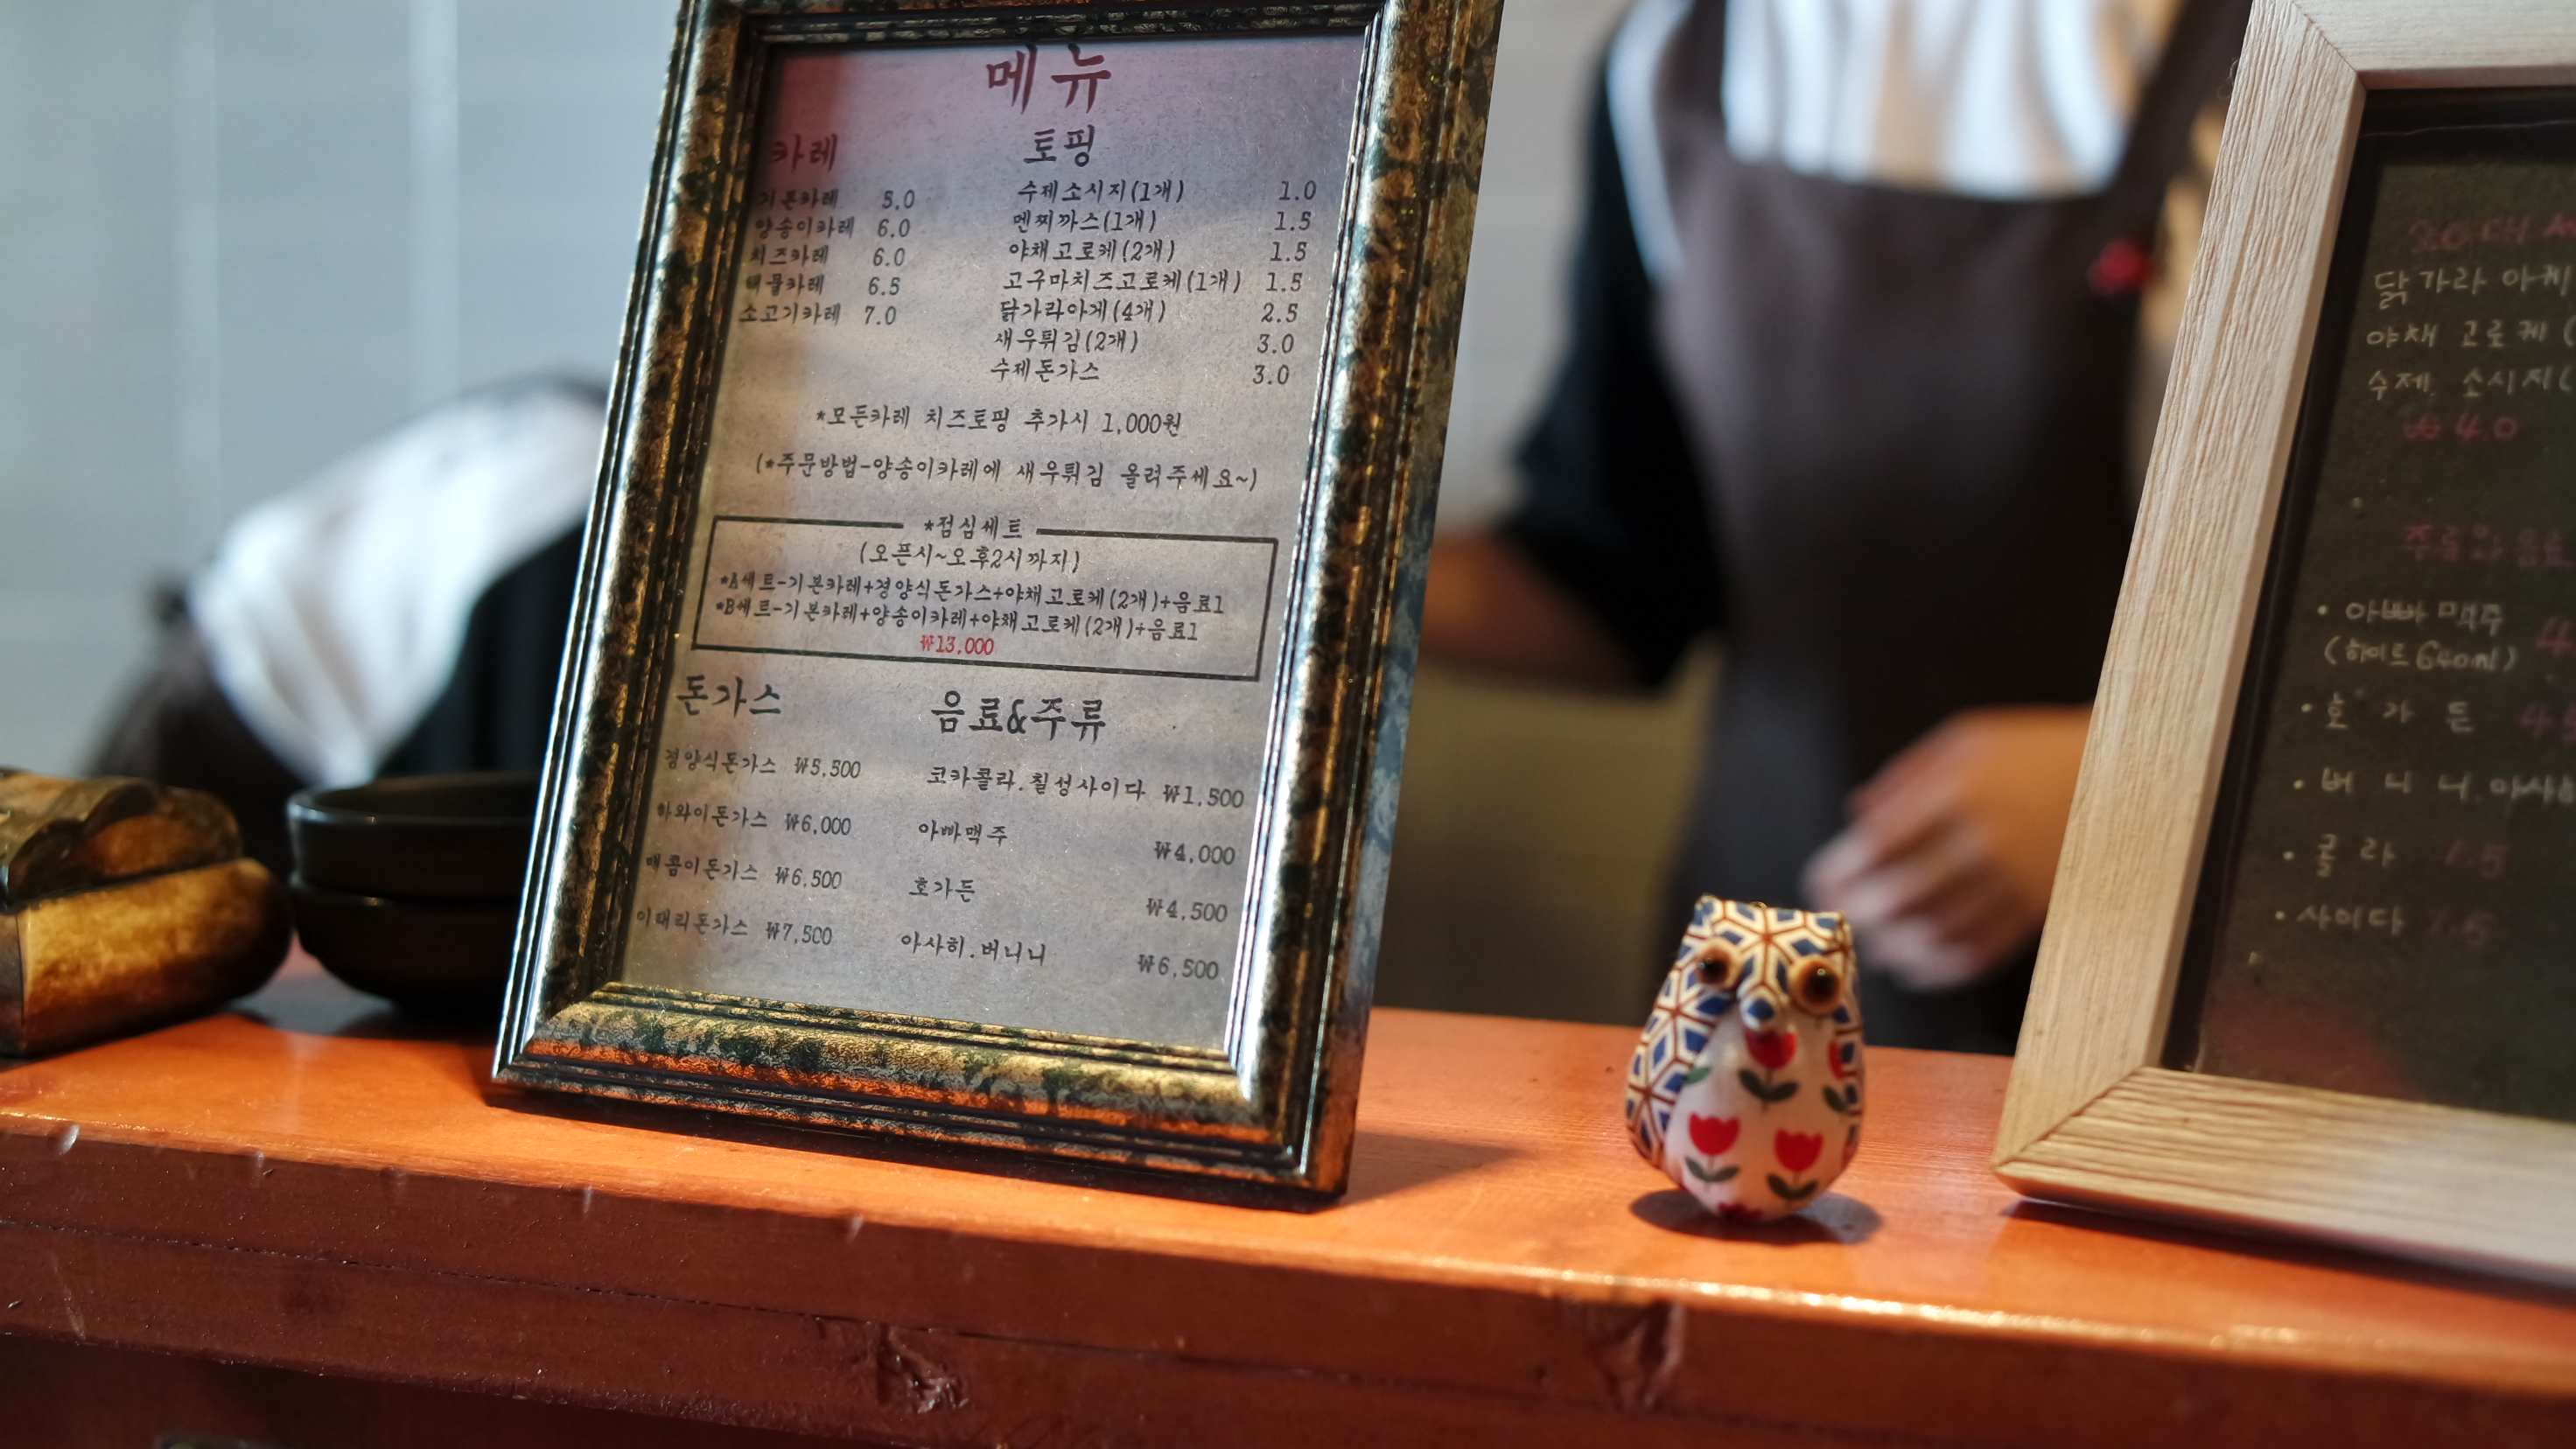 메뉴
카레
기본카레 5.0
양송이카레 6.0
치즈카레 6.0
해물카레 6.5
소고기카레 7.0
토핑
수제소시지(1개) 1.0
멘찌까스(1개) 1.5
야채고로케(2개) 1.5
고구마치즈고로케(1개) 1.5
닭가라아게(4개) 2.5
새우튀김(2개) 3.0
수제돈가스 3.0
*모든카레 치즈토핑 추가시 1,000원
(*주문방법-양송이카레에 새우튀김 올려주세요~)
*점심세트
(오픈시~오후2시까지)
*A세트-기본카레+경양식돈가스+야채고로케(2개)+음료1
*B세트-기본카레+양송이카레+야채고로케(2개)+음료1
₩13,000
돈가스
경양식돈가스 ₩5,500
하와이돈가스 ₩6,000
매콤이돈가스 ₩6,500
이태리돈가스 ₩7,500
음료&주류
코카콜라.칠성사이다 ₩1,500
아빠맥주 ₩4,000
호가든 ₩4,500
아사히.버니니 ₩6,500
닭가라아게
야채 고로케(
수제. 소시지(
₩4.0
주류와 음료
• 아빠 맥주 4
(하이트 640ml)
• 호 가 든 4.
• 버 니 니.아사히
• 콜 라 1.5
• 사이다 1.5